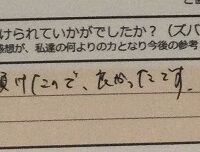 けられていかがでしたか？（ズバ
感想が、私達の何よりの力となり今後の参考
頂けたので、良かったです。